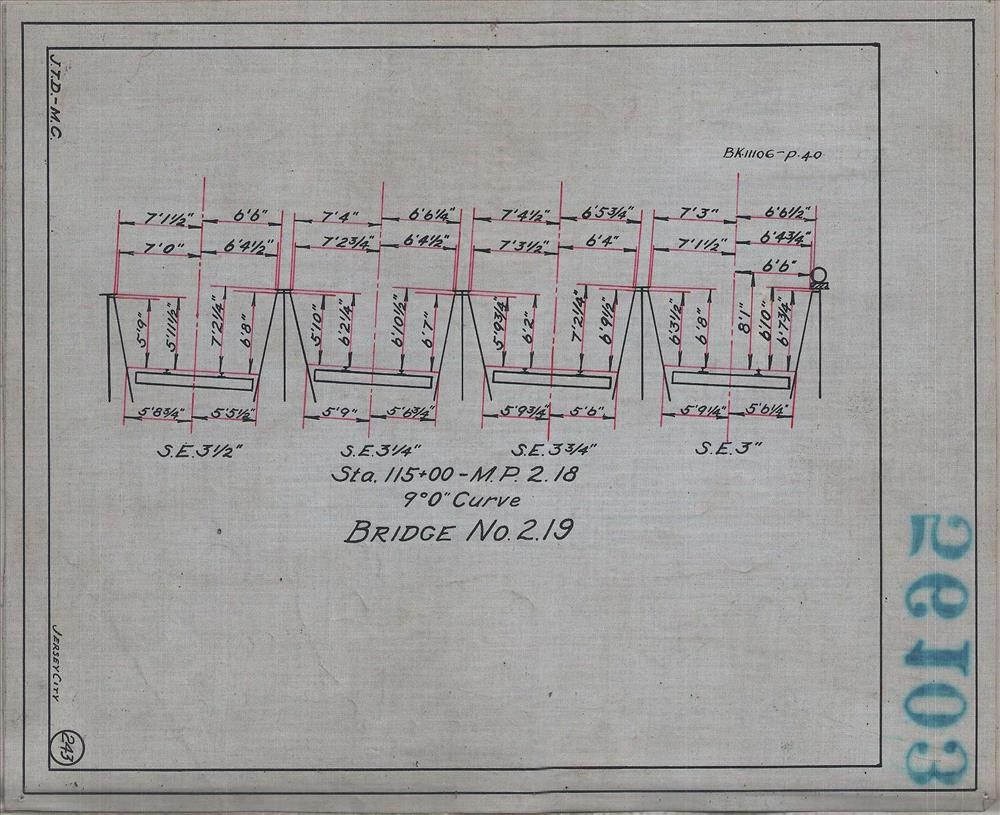 J.T.D.-M.C.
BK11106-P.40
7'1½" 6'6" 7'4" 6'6¼" 7'4½" 6'5¾" 7'3" 6'6½"
7'0" 6'4½" 7'2¾" 6'4½" 7'3½" 6'4" 7'1½" 6'4¾"
6'6"
5'9" 5'11½" 7'2¼" 6'8" 5'10" 6'2¼" 6'10½" 6'7" 5'9¾" 6'2" 7'2¼" 6'9½" 6'3½" 6'8" 8'1" 6'10" 6'7¾"
5'8¾" 5'5½" 5'9" 5'6¾" 5'9¾" 5'6" 5'9¼" 5'6¼"
S.E.3½" S.E.3¼" S.E.3¾" S.E.3"
Sta. 115+00-M.P. 2.18
9°0" Curve
BRIDGE No. 2.19
JERSEY CITY
243
26103